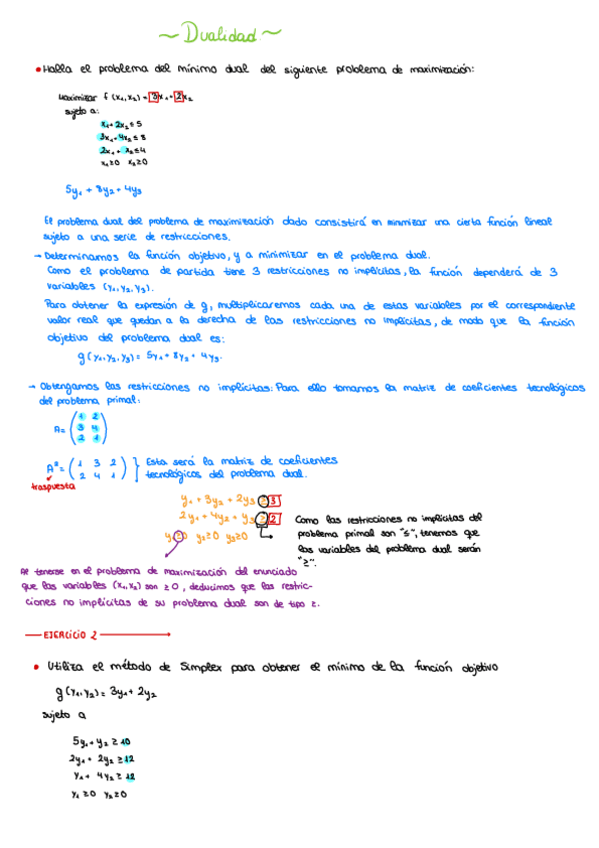 ~ Dualidad ~
• Halla el problema del mínimo dual del siguiente problema de maximización:
Maximizar f (x₁, x₂) = 3x₁ + 2x₂
sujeto a:
x₁ + 2x₂ ≤ 5
3x₁ + 4x₂ ≤ 8
2x₁ + x₂ ≤ 4
x₁ ≥ 0 x₂ ≥ 0
5y₁ + 8y₂ + 4y₃
El problema dual del problema de maximización dado consistirá en minimizar una cierta función lineal
sujeto a una serie de restricciones.
→ Determinamos la función objetivo, y a minimizar en el problema dual.
Como el problema de partida tiene 3 restricciones no implícitas, la función dependerá de 3
variables (y₁, y₂, y₃).
Para obtener la expresión de g, multiplicaremos cada una de estas variables por el correspondiente
valor real que quedan a la derecha de las restricciones no implícitas, de modo que la función
objetivo del problema dual es:
g (y₁, y₂, y₃) = 5y₁ + 8y₂ + 4y₃.
→ Obtengamos las restricciones no implícitas: Para ello tomamos la matriz de coeficientes tecnológicos
del problema primal:
1 2
A = ( 3 4 )
2 1
1 3 2 Esta será la matriz de coeficientes
A = ( 2 4 1 ) } tecnológicos del problema dual.
traspuesta
y₁ + 3y₂ + 2y₃ ≥ 3
2y₁ + 4y₂ + y₃ ≥ 2
y₁ ≥ 0 y₂ ≥ 0 y₃ ≥ 0
Como las restricciones no implícitas del
problema primal son "≤", tenemos que
las variables del problema dual serán
"≥".
Al tenerse en el problema de maximización del enunciado
que las variables (x₁, x₂) son ≥ 0, deducimos que las restric-
ciones no implícitas de su problema dual son de tipo ≥.
EJERCICIO 2
• Utiliza el método de Simplex para obtener el mínimo de la función objetivo
g (y₁, y₂) = 3y₁ + 2y₂
sujeto a
5y₁ + y₂ ≥ 10
2y₁ + 2y₂ ≥ 12
y₁ + 4y₂ ≥ 12
y₁ ≥ 0 y₂ ≥ 0